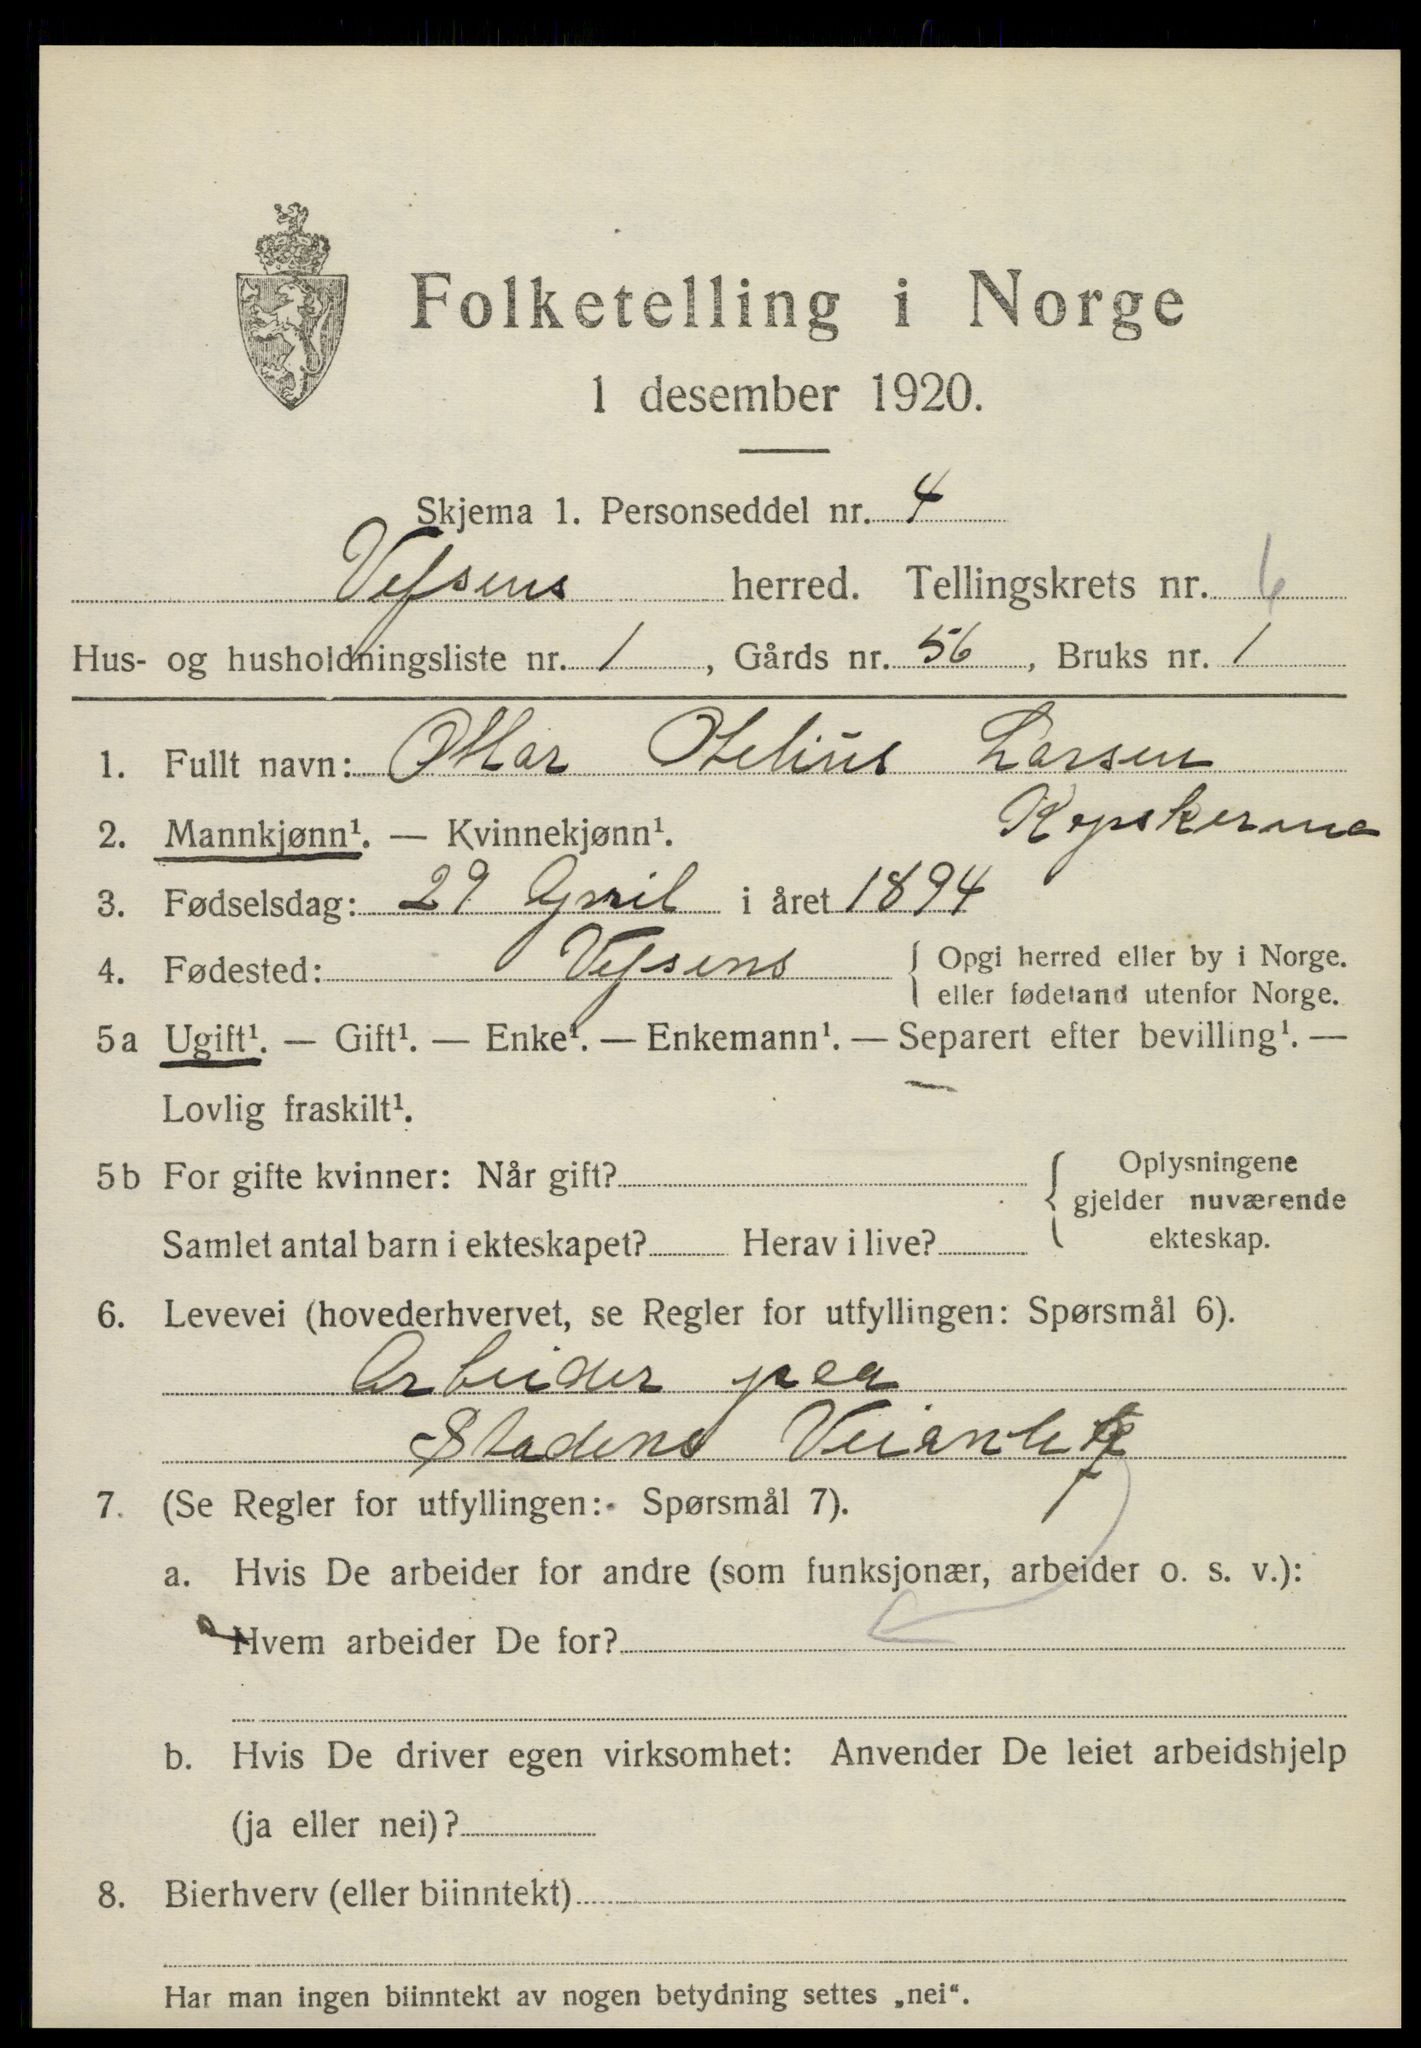 Folketelling i Norge
1 desember 1920.
Skjema 1. Personseddel nr. 4
Vefsens herred. Tellingskrets nr. 6
Hus- og husholdningsliste nr. 1, Gårds nr. 56, Bruks nr. 1
1. Fullt navn: Ottar Otelius Larsen
Kapskarmo
2. Mannkjønn¹. — Kvinnekjønn¹.
3. Fødselsdag: 29 April i året 1894
4. Fødested: Vefsens { Opgi herred eller by i Norge.
eller fødeland utenfor Norge.
5a Ugift¹. — Gift¹. — Enke¹. — Enkemann¹. — Separert efter bevilling¹. —
Lovlig fraskilt¹.
5b For gifte kvinner: Når gift? { Oplysningene
gjelder nuværende
Samlet antal barn i ekteskapet? Herav i live? ekteskap.
6. Levevei (hovederhvervet, se Regler for utfyllingen: Spørsmål 6).
Arbeider paa
Stadens
7. (Se Regler for utfyllingen: Spørsmål 7).
a. Hvis De arbeider for andre (som funksjonær, arbeider o. s. v.):
Hvem arbeider De for?
b. Hvis De driver egen virksomhet: Anvender De leiet arbeidshjelp
(ja eller nei)?
8. Bierhverv (eller biinntekt)
Har man ingen biinntekt av nogen betydning settes „nei“.